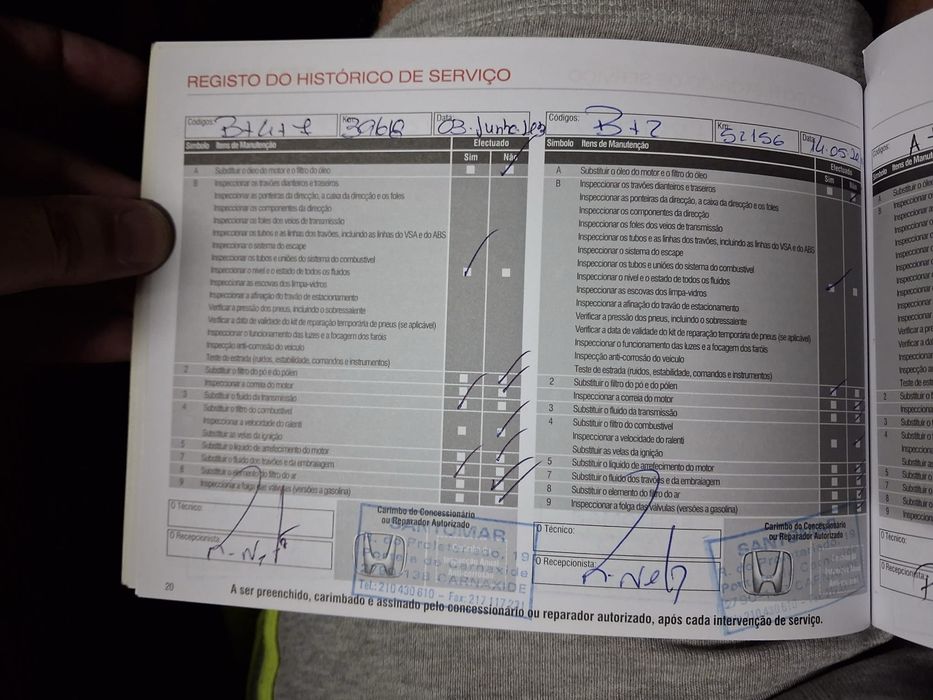 REGISTO DO HISTÓRICO DE SERVIÇO
Códigos: B+4+7
Km: 39618
Data: 03.Junho.
Símbolo Itens de Manutenção Efectuado
Sim Não
A Substituir o óleo do motor e o filtro do óleo
B Inspeccionar os travões dianteiros e traseiros
Inspeccionar as ponteiras da direcção, a caixa da direcção e os foles
Inspeccionar os componentes da direcção
Inspeccionar os foles dos veios de transmissão
Inspeccionar os tubos e as linhas dos travões, incluindo as linhas do VSA e do ABS
Inspeccionar o sistema do escape
Inspeccionar os tubos e uniões do sistema do combustível
Inspeccionar o nível e o estado de todos os fluidos
Inspeccionar as escovas dos limpa-vidros
Inspeccionar a afinação do travão de estacionamento
Verificar a pressão dos pneus, incluindo o sobressalente
Verificar a data de validade do kit de reparação temporária de pneus (se aplicável)
Inspeccionar o funcionamento das luzes e a focagem dos faróis
Inspecção anti-corrosão do veículo
Teste de estrada (ruídos, estabilidade, comandos e instrumentos)
2 Substituir o filtro do pó e do pólen
Inspeccionar a correia do motor
3 Substituir o fluido da transmissão
4 Substituir o filtro do combustível
Inspeccionar a velocidade do ralenti
Substituir as velas da ignição
5 Substituir o líquido de arrefecimento do motor
7 Substituir o fluido dos travões e da embraiagem
8 Substituir o elemento do filtro do ar
9 Inspeccionar a folga das válvulas (versões a gasolina)
O Técnico:
O Recepcionista:
Carimbo do Concessionário
ou Reparador Autorizado
SANTOMAR
R. do Proletariado, 19
Portela de Carnaxide
CARNAXIDE
Tel.: 210 430 610 – Fax: 217 117 221
Códigos: B+2
Km: 52156
Data: 14.05.20
Símbolo Itens de Manutenção Efectuado
Sim Não
A Substituir o óleo do motor e o filtro do óleo
B Inspeccionar os travões dianteiros e traseiros
Inspeccionar as ponteiras da direcção, a caixa da direcção e os foles
Inspeccionar os componentes da direcção
Inspeccionar os foles dos veios de transmissão
Inspeccionar os tubos e as linhas dos travões, incluindo as linhas do VSA e do ABS
Inspeccionar o sistema do escape
Inspeccionar os tubos e uniões do sistema do combustível
Inspeccionar o nível e o estado de todos os fluidos
Inspeccionar as escovas dos limpa-vidros
Inspeccionar a afinação do travão de estacionamento
Verificar a pressão dos pneus, incluindo o sobressalente
Verificar a data de validade do kit de reparação temporária de pneus (se aplicável)
Inspeccionar o funcionamento das luzes e a focagem dos faróis
Inspecção anti-corrosão do veículo
Teste de estrada (ruídos, estabilidade, comandos e instrumentos)
2 Substituir o filtro do pó e do pólen
Inspeccionar a correia do motor
3 Substituir o fluido da transmissão
4 Substituir o filtro do combustível
Inspeccionar a velocidade do ralenti
Substituir as velas da ignição
5 Substituir o líquido de arrefecimento do motor
7 Substituir o fluido dos travões e da embraiagem
8 Substituir o elemento do filtro do ar
9 Inspeccionar a folga das válvulas (versões a gasolina)
O Técnico:
O Recepcionista:
Carimbo do Concessionário
ou Reparador Autorizado
20
A ser preenchido, carimbado e assinado pelo concessionário ou reparador autorizado, após cada intervenção de serviço.